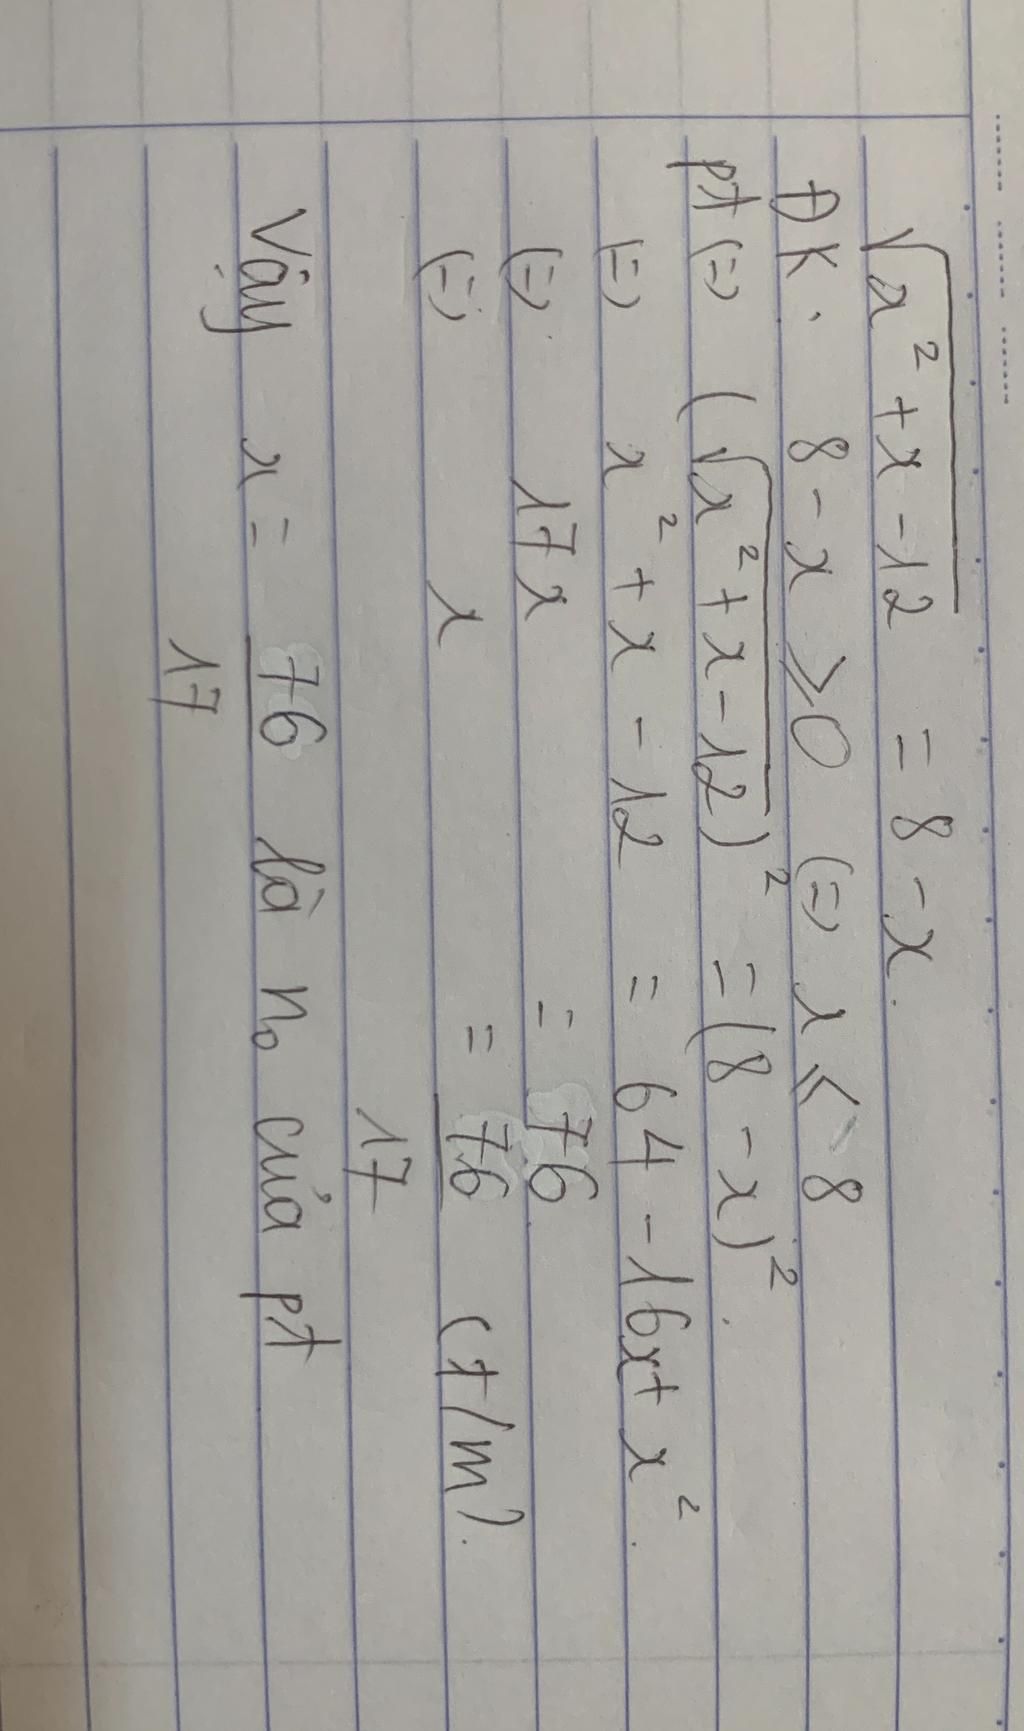 √(x² + x - 12) = 8 - x.
ĐK. 8 - x ⩾ 0 (=) x ⩽ 8
pt (=) (√(x² + x - 12))² = (8 - x)².
(=) x² + x - 12 = 64 - 16x + x².
(=) 17x = 76
(=) x = 76/17 (t/m).
Vậy x = 76/17 là n₀ của pt